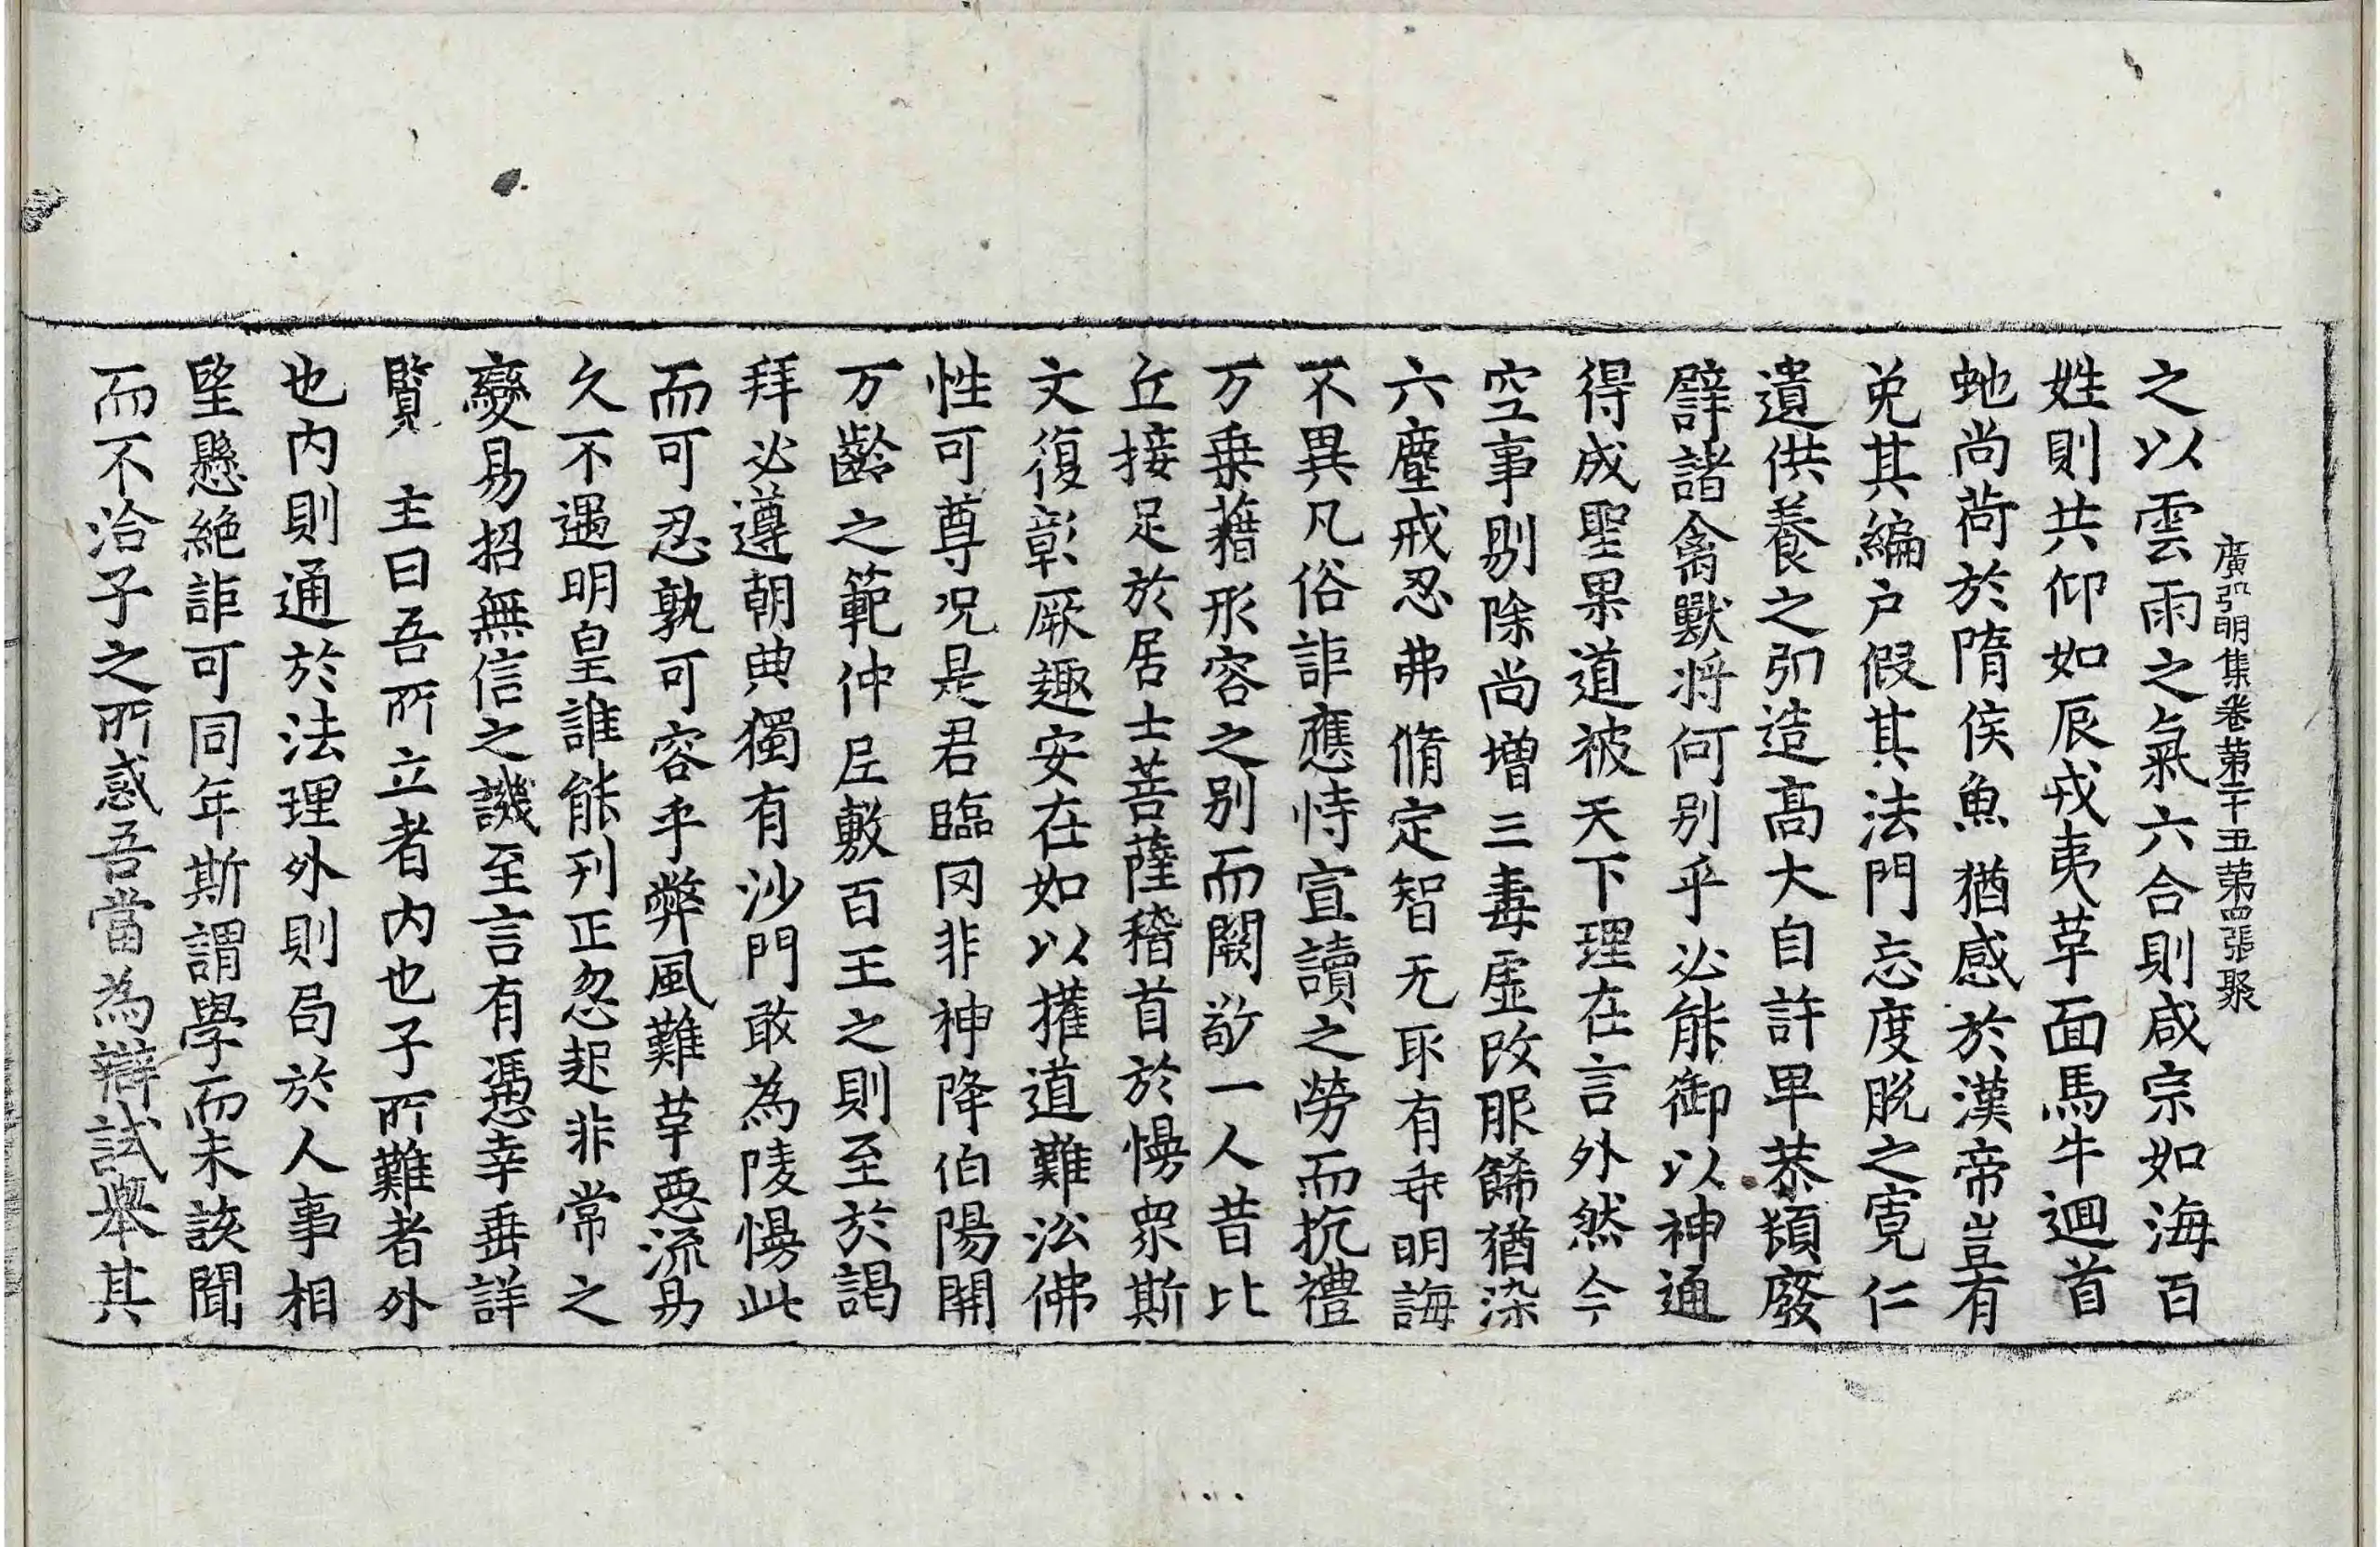 廣弘明集卷第二十五第四張聚
之以雲雨之氣六合則咸宗如海百
姓則共仰如辰戎夷革面馬牛迴首
虵尚荷於隋侯魚猶感於漢帝豈有
免其編户假其法門忘度脫之寛仁
遺供養之引造高大自許卑恭頓廢
譬諸禽獸將何别乎必能御以神通
得成聖果道被天下理在言外然今
空事剔除尚增三毒虛改服餝猶染
六塵戒忍弗脩定智无取有乖明誨
不異凡俗詎應恃宣讀之勞而抗禮
万乗藉形容之别而闕敬一人昔比
丘接足於居士菩薩稽首於慢衆斯
文復彰厥趣安在如以權道難沿佛
性可尊况是君臨罔非神降伯陽開
万齡之範仲尼敷百王之則至於謁
拜必遵朝典獨有沙門敢為陵慢此
而可忍孰可容乎弊風難革惡流易
久不遇明皇誰能刊正忽起非常之
變易招無信之譏至言有憑幸垂詳
覧 主曰吾所立者内也子所難者外
也内則通於法理外則局於人事相
望懸絶詎可同年斯謂學而未該聞
而不洽子之所惑吾當為辯試舉其